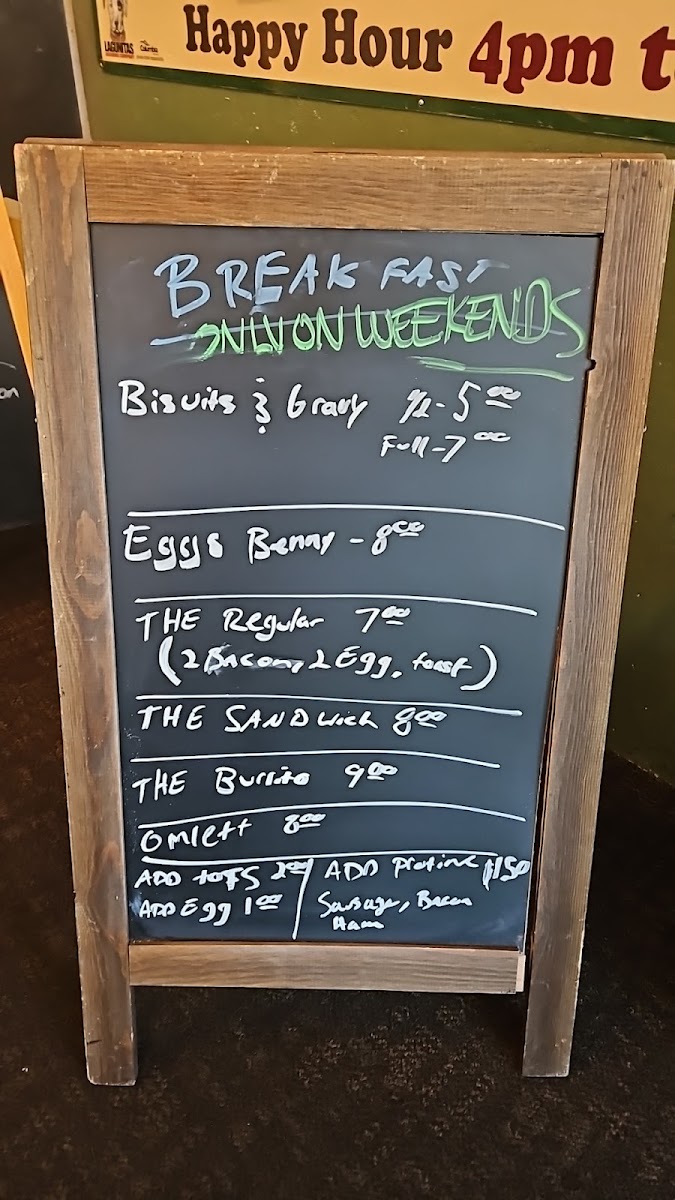 LAGUNITAS
Columbia
Happy Hour 4pm t
BREAKFAST
ONLY ON WEEKENDS
Biscuits & Gravy ½-5⁰⁰
Full-7⁰⁰
Eggs Benny - 8⁰⁰
THE Regular 7⁰⁰
(2 Bacon, 2 Egg, toast)
THE SANDwich 8⁰⁰
THE Burrito 9⁰⁰
Omlett 8⁰⁰
ADD tots 2⁰⁰ / ADD Protine $1.50
ADD Egg 1⁰⁰ Sausage, Bacon
Ham